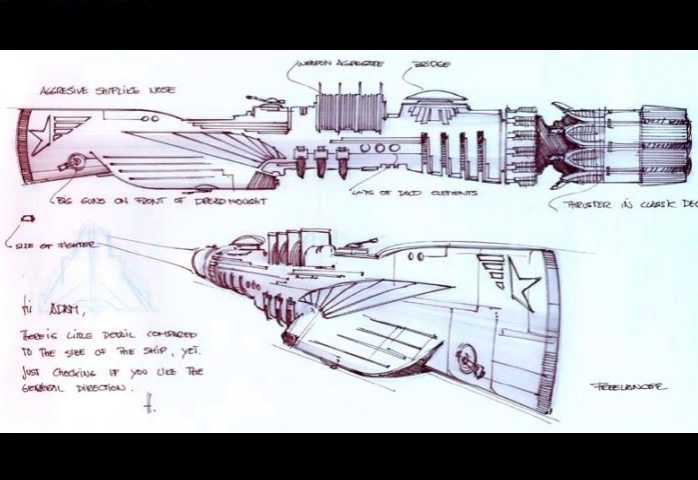 WEAPON AGGREGATE
BRIDGE
AGGRESIVE SHIPLIKE NOSE
BIG GUNS ON FRONT OF DREADNOUGHT
LOTS OF DECO ELEMENTS
THRUSTER IN CLASSIC DEC
SIZE OF FIGHTER
Hi ADAM,
THERE IS LITTLE DETAIL COMPARED
TO THE SIZE OF THE SHIP, YET.
JUST CHECKING IF YOU LIKE THE
GENERAL DIRECTION.
FREELANCER